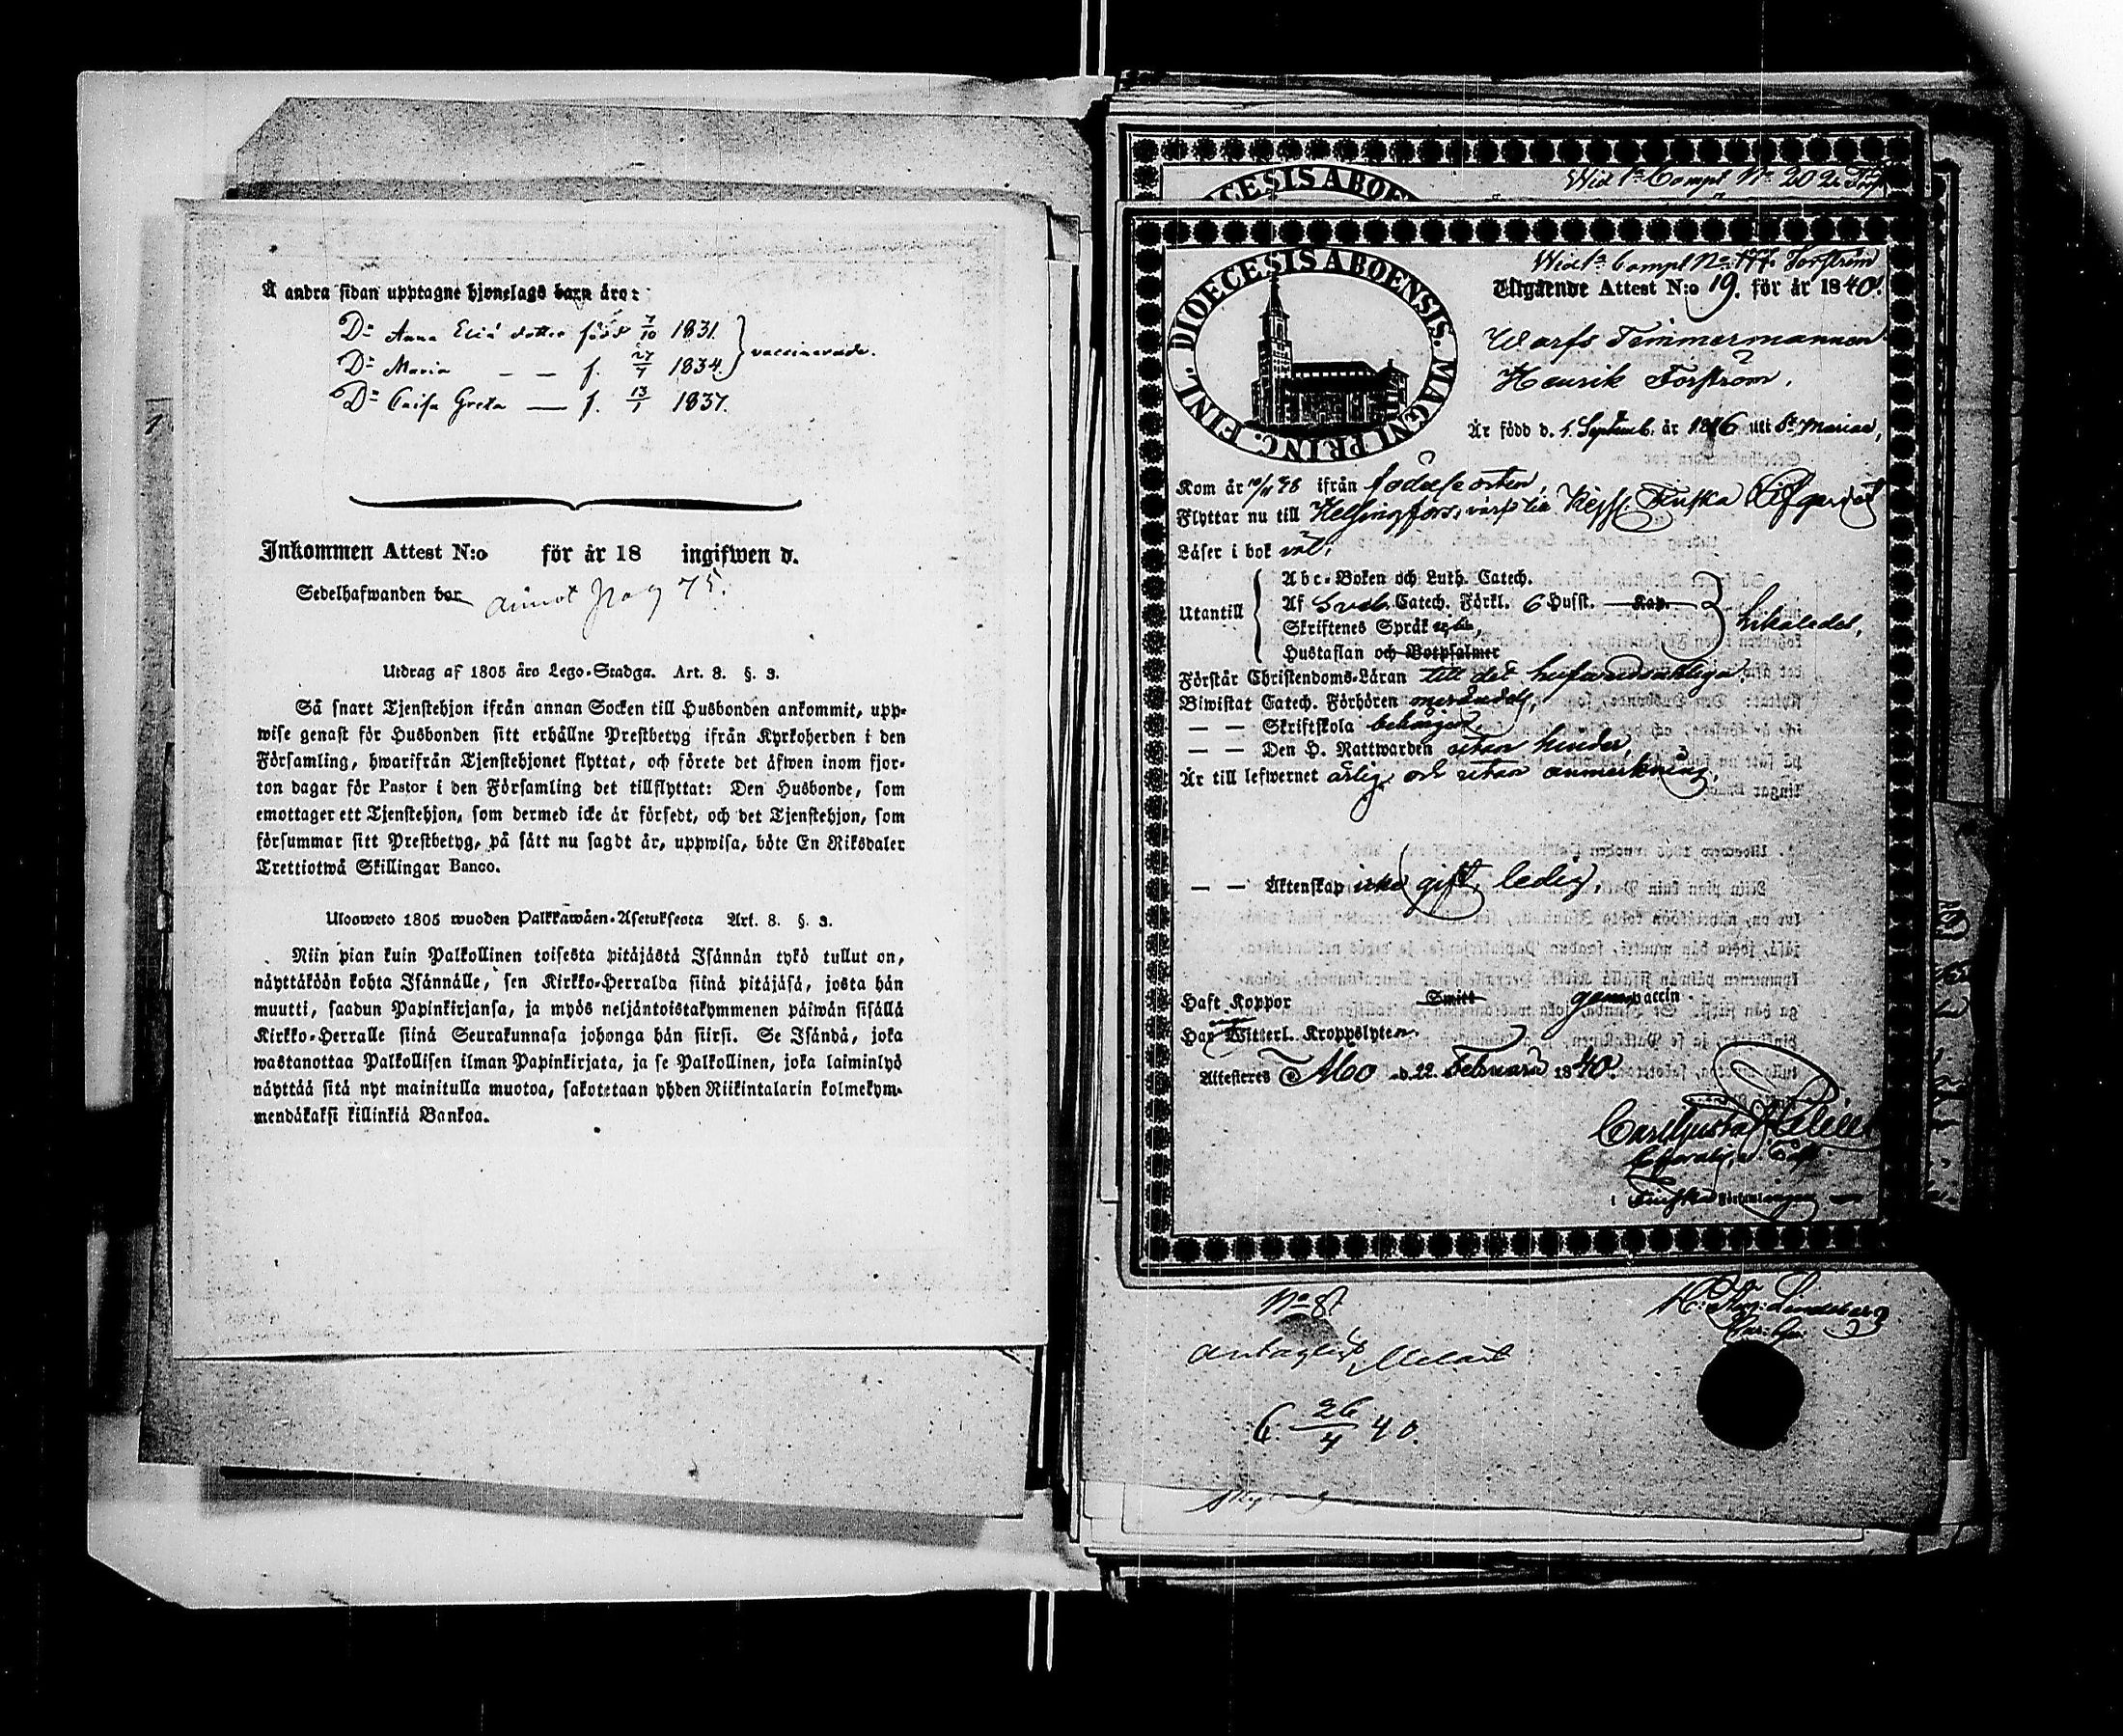 Å andra sidan upptagne hjonelags barn äro:
D:r Anna Eliæ dotter född 7/10 1831.
D:r Maria — — f. 27/7 1834. } vaccinerade.
D:r Caisa Greta — f. 13/1 1837.
Inkommen Attest N:o för år 18 ingifwen d.
Sedelhafwanden bor annot pag 75.
Utdrag af 1805 års Lego-Stadga. Art. 8. §. 3.
Så snart Tjenstehjon ifrån annan Socken till Husbonden ankommit, upp-
wise genast för Husbonden sitt erhållne Prestbetyg ifrån Kyrkoherden i den
Församling, hwarifrån Tjenstehjonet flyttat, och förete det äfwen inom fjor-
ton dagar för Pastor i den Församling det tillflyttat: Den Husbonde, som
emottager ett Tjenstehjon, som dermed icke är försedt, och det Tjenstehjon, som
försummar sitt Prestbetyg, på sätt nu sagdt är, uppwisa, böte En Riksdaler
Trettiotwå Skillingar Banco.
Ulosweto 1805 wuoden Palkkawäen-Asetuksesta Art. 8. §. 3.
Niin pian kuin Palkollinen toisesta pitäjästä Isännän tykö tullut on,
näyttäköön kohta Isännälle, sen Kirkko-Herralda siinä pitäjäsä, josta hän
muutti, saadun Papinkirjansa, ja myös neljäntoistakymmenen päiwän sisällä
Kirkko-Herralle siinä Seurakunnasa johonga hän siirsi. Se Isändä, joka
wastanottaa Palkollisen ilman Papinkirjata, ja se Palkollinen, joka laiminlyö
näyttää sitä nyt mainitulla muotoa, sakotetaan yhden Riikintalarin kolmekym-
mendäkaksi killinkiä Bankoa.
DIOECESIS ABOENSIS
Wid 1:a Compl N:o 202
Wid 1:a Compl No. 177. Forström
Utgående Attest N:o 19. för år 1840.
DIOECESIS ABOENSIS. MAGNI PRINC. FINL.
Warfs Timmermannen
Henrik Forström,
Är född d. 1. Septemb. år 1816 uti S:t Mariae,
Kom år 10/11 38 ifrån födelseorten,
Flyttar nu till Helsingfors,
Läser i bok väl,
Abc-Boken och Luth. Catech.
Utantill Af Sveb. Catech. Förkl. 6 Hufst. Kap.
Skriftenes Språk
Hustaflan och Botpsalmer
Förstår Christendoms-Läran till det hufvudsakliga.
Biwistat Catech. Förhören
— — Skriftskola behörigen,
— — Den H. Nattwarden utan hinder,
Är till lefwernet ärlig, och utan anmärkning,
— — Äktenskap icke gift, ledig,
Haft Koppor Smitt genom vaccin.
Har Witterl. Kroppslyten.
Attesteras Åbo d. 22. Februari 1840.
Carl Gustaf
i Finska
N:o 81
Lindeberg
antagligt
26/4 40.